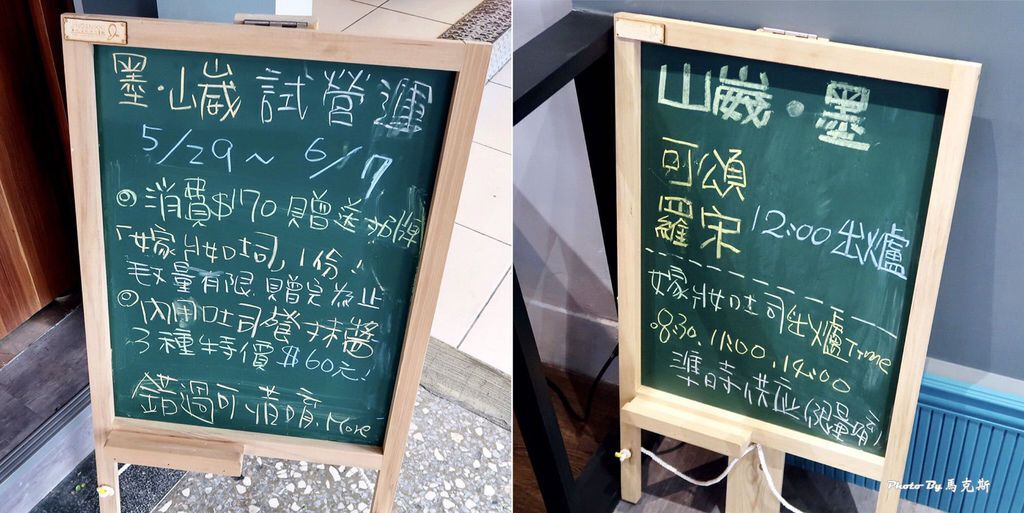 墨·山崴 試營運
5/29～6/7
◎消費$170 贈送招牌
「嫁妝吐司」1份！
數量有限 贈完為止
◎內用吐司餐 抹醬
3種 特價$60元！
錯過可惜唷. More
山崴·墨
可頌
羅宋 12:00出爐
嫁妝吐司出爐Time
8:30. 11:00. 14:00
準時供應 (限量
Photo By 馬克斯